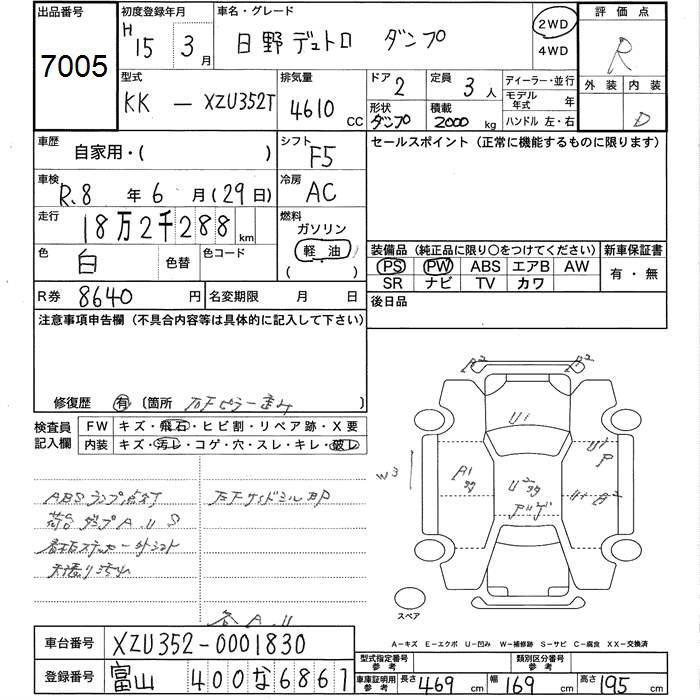 出品番号
7005
初度登録年月
H15 3月
車名・グレード
日野デュトロ ダンプ
2WD
4WD
評価点
R
外装 内装
D
型式
KK - XZU352T
排気量
4610 cc
ドア
2
定員
3人
形状
ダンプ
積載
2000 kg
ディーラー・並行
モデル年式 年
ハンドル 左・右
車歴
自家用・( )
シフト
F5
セールスポイント(正常に機能するものに限ります)
車検
R.8 年 6 月(29日)
冷房
AC
走行
18万2千288 km
燃料
ガソリン
軽油
( )
色
白
色替
色コード
装備品(純正品に限り○をつけてください)
新車保証書
PS PW ABS エアB AW
SR ナビ TV カワ
有・無
R券 8640 円
名変期限 月 日
後日品
注意事項申告欄(不具合内容等は具体的に記入して下さい)
修復歴 有 〔箇所 )
検査員記入欄
FW キズ・飛石・ヒビ割・リペア跡・X要
内装 キズ・汚レ・コゲ・穴・スレ・キレ・破レ
ABSランプ点灯
荷台ダンプA.U S
A2
A2
U1
P
W3
A1
U2
U1 A2
スペア
A-キズ E-エクボ U-凹み W-補修跡 S-サビ C-腐食 XX-交換済
車台番号 XZU352-0001830
登録番号 富山 400 な 6867
型式指定番号 参考
類別区分番号 参考
車庫証明用 参考
長さ 469 cm
幅 169 cm
高さ 195 cm